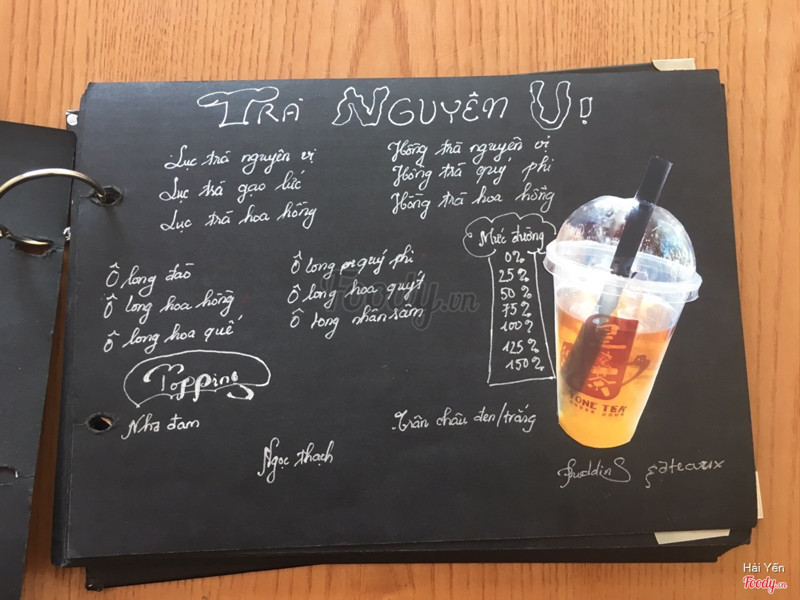 TRÀ NGUYÊN VỊ
Lục trà nguyên vị
Lục trà gạo lức
Lục trà hoa hồng
Hồng trà nguyên vị
Hồng trà quý phi
Hồng trà hoa hồng
Mức đường
0%
25%
50%
75%
100%
125%
150%
Ô long đào
Ô long hoa hồng
Ô long hoa quế
Ô long quý phi
Ô long hoa quýt
Ô long nhân sâm
Foody.vn
Topping
Nha đam
Ngọc thạch
Trân châu đen/trắng
pudding gateaux
TONE TEA
Hải Yến
Foody.vn